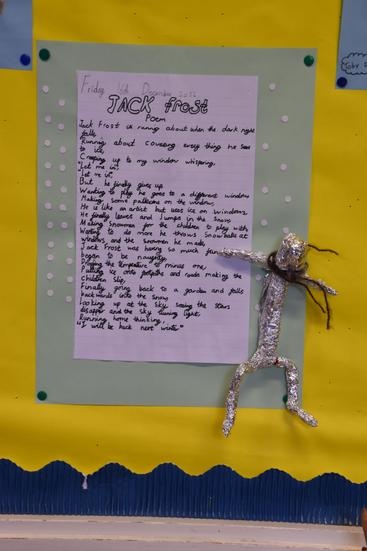 Friday 16th December 2022
JACK frost
Poem
Jack Frost is runing about when the dark night
falls.
Running about covering every thing he sees
to ice,
Creeping up to my window whispring,
"Let me in,
"let me in",
But he finally gives up.
Wanting to play he goes to a different window
Making some patterns on the window,
He is like an artist but uses ice on windows.
He finally leaves and Jumps in the Snow
Making Snowmen for the children to play with,
Wanting to do more he throws Snowballs at
windows and the snowmen he made,
Jack Frost was having so much fun
began to be naughty,
the tempreture to minus one,
Putting ice onto footpaths and roads making the
children slip,
Finally going back to a garden and falls
backwards into the Snow
Looking up at the sky, seeing the stars
disapper and the sky turning light,
Running home thinking,
"I will be back next winter"
Toby